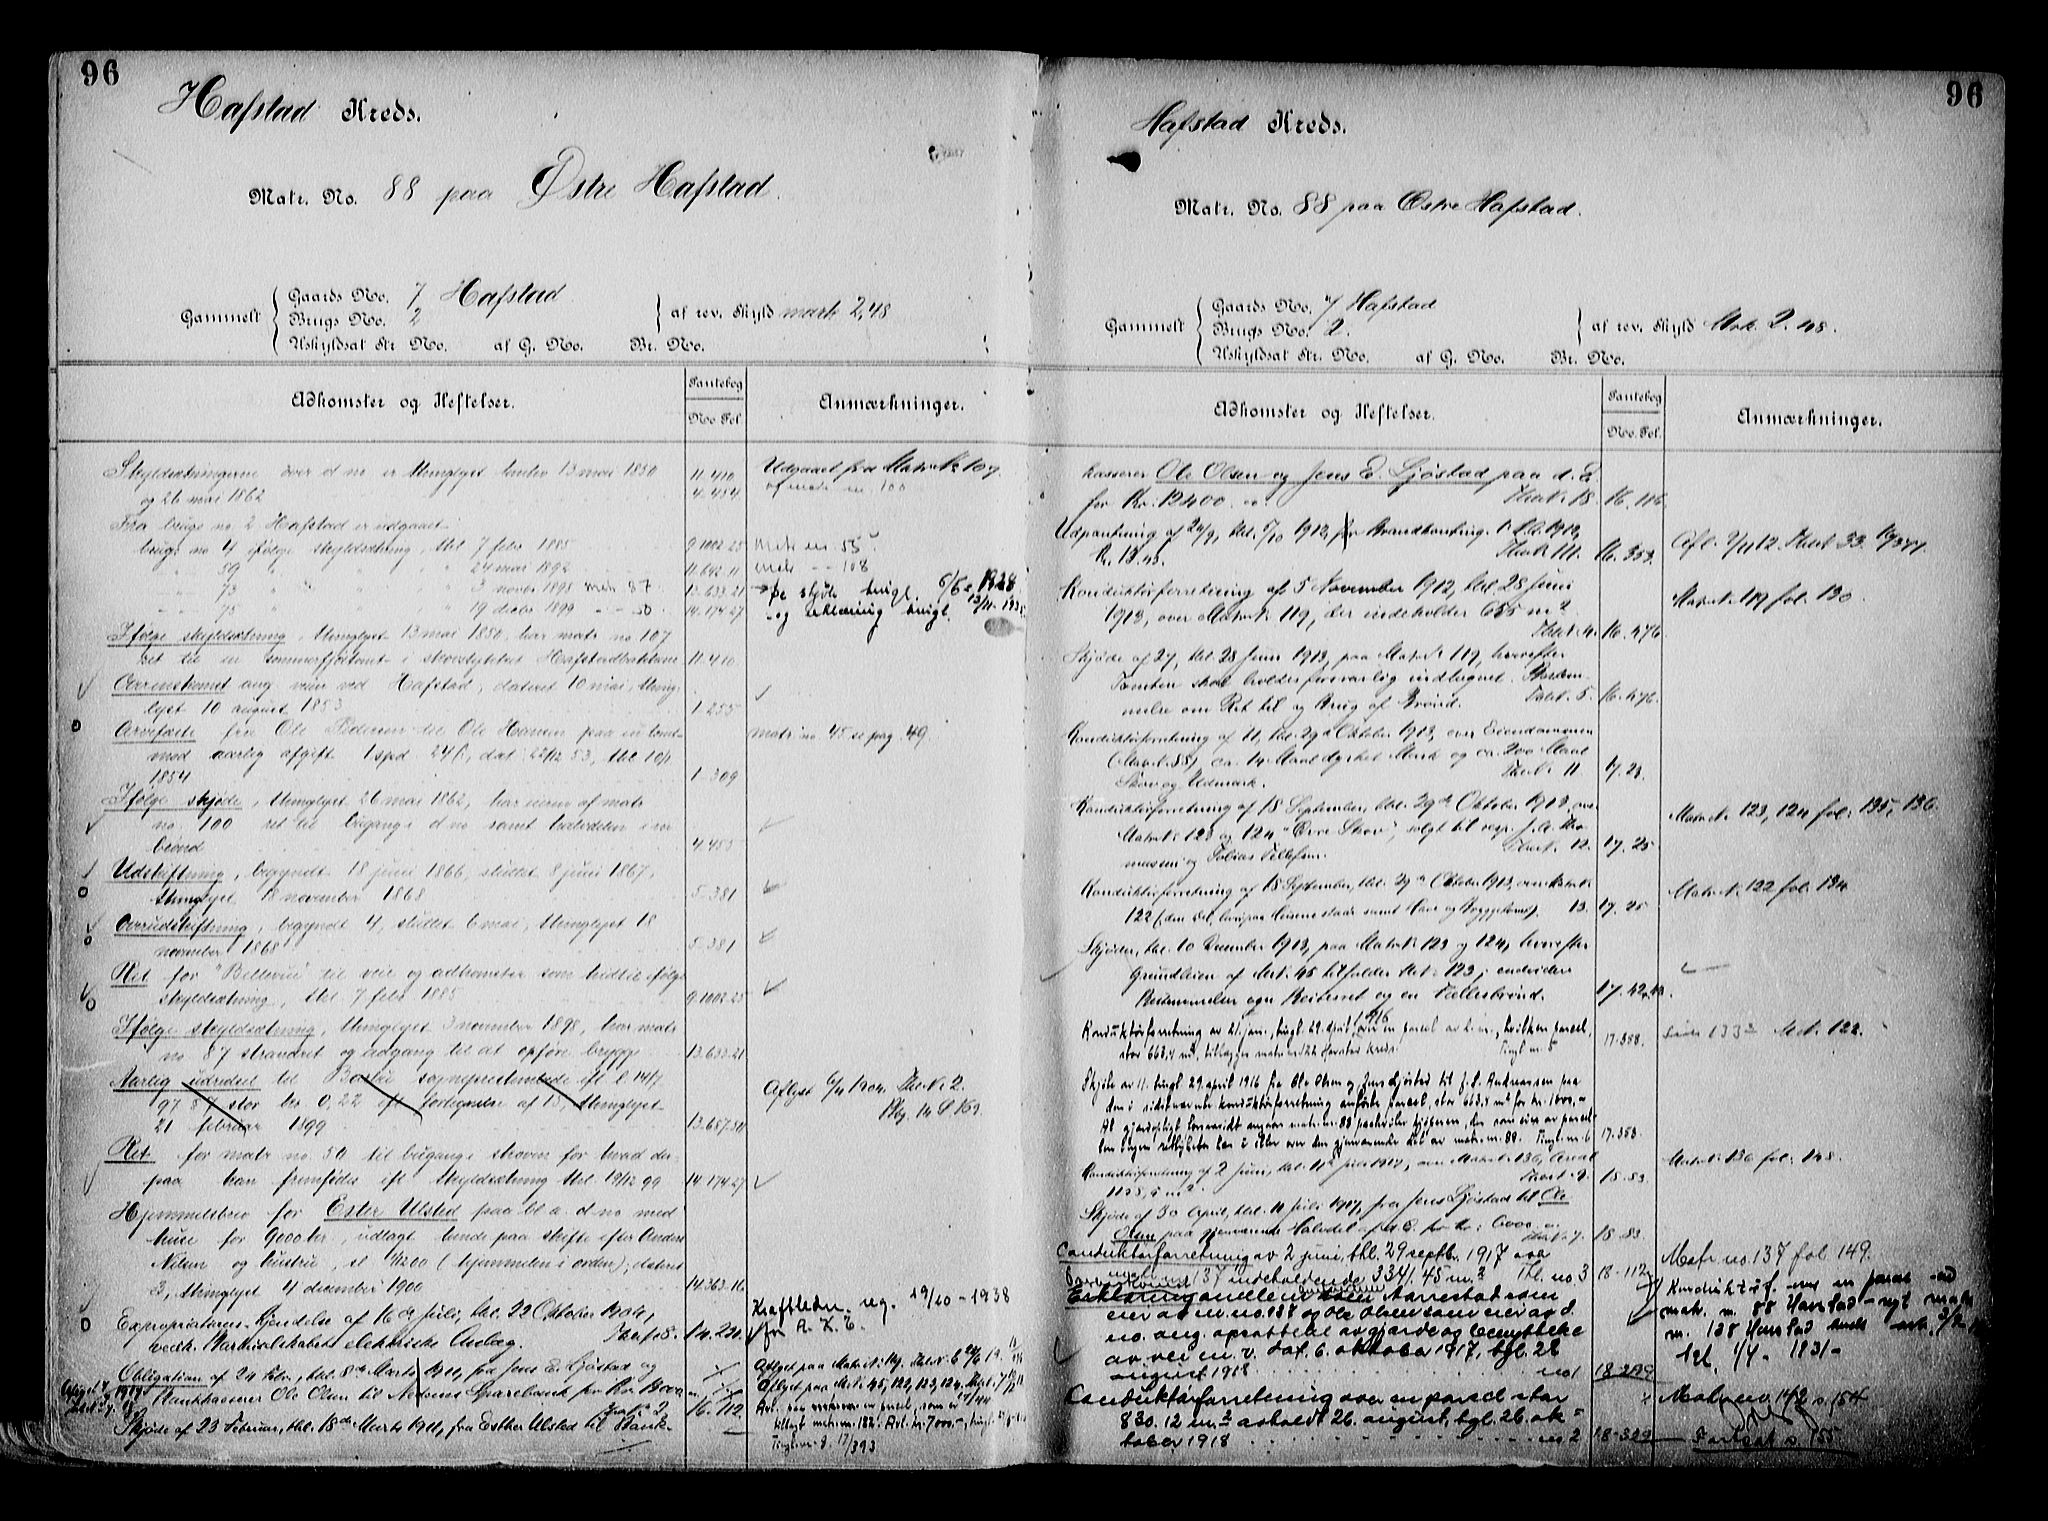 96
Hafstad Kreds.
Matr. No. 88 paa Østre Hafstad.
Gammelt
Gaards No. 7 Hafstad
Brugs No. 2
Uskyldsat Str. No. af G. No. Br. No.
af rev. Skyld mark 2,48
Adkomster og Heftelser.
Pantebog
No Fol.
Anmærkninger.
Skyldsætningerne over d no er thinglyst 13 mai 1850
og 26 mai 1862
11. 410
4. 454
Udgaaet fra Matr. N. 107
af matr. n. 100
Fra brugs no. 2 Hafstad er udgaaet
brugs no 4 ifølge skyldsætning, thl 7 febr 1885
9.1002.25
Matr no 55
" " 59 " " " 24 mai 1892
11.642.11
Matr - - 108
" " 73 " " " 3 novbr 1898 matr 87
13.633.21
skjøte tingl. 6/6 1928
" " 75 " " " 19 decbr 1899 - - 50
14.174.27
og erklæring tingl. 13/11-1935
Ifølge skyldsætning, thinglyst 13 mai 1850, har matr no 107
ret til en sommerfjøstomt i skovstykket Hafstadbakken
11.410
Overenskomst ang veien ved Hafstad, dateret 10 mai, thing-
lyst 10 august 1853
1.255
Arvefæste fra Ole Pedersen til Ole Hansen paa en tomt
mod aarlig afgift 1 spd 24 ß, dat 22/12 53, thl 10/1
1854
1.309
matr. no. 45 se pag. 49.
Ifølge skjøde, thinglyst 26 mai 1862, har eieren af matr
no. 100 ret til bugang i d no samt
brönd
4.455
Udskiftning, begyndt 18 juni 1866, sluttet 8 juni 1867,
thinglyst 18 november 1868
5.381
Overudskiftning, begyndt 4, sluttet 6 mai, thinglyst 18
november 1868
5.381
Ret for "Bellevue" til veie og adkomster som hidtil ifølge
skyldsætning, thl 7 febr 1885
9.1002.25
Ifølge skyldsætning, thinglyst 3 november 1898, har matr
no 87 strandret og adgang til at opføre brygge
13.633.21
Aarlig udredsel til Borstu sogneprestembede ifl l. 14/7
97 § 7 stor kr 0,22 ift fortegnelse af 15, thinglyst
21 februar 1899
13.687.30
Aflyst 6/4 1904. Thl N. 2.
Pbg. 14 S. 169.
Ret for matr no. 50 til bugang i skoven for hvad der-
paa kan fremfødes ifl skyldsætning thl 19/12 99
14.174.27
Hjemmelsbrev for Ester Ulsted paa bl a. d no med
huse for 9000 kr, udlagt hende paa skifte efter Anders
Nilsen og hustru, (hjemmelen i orden); dateret
3, thinglyst 4 december 1900
14.363.16
Expropriations-Kjendelse af 16 og Juli, thl. 22 Oktober 1904,
vedk. Narvikselskabets elektriske Anlæg.
14.221
Kraftledn. reg. 19/10-1938
for A. K. E.
Obligation af 24 Febr, thl. 8de Marts 1911, fra Jens E. Gjøstad og
Bankkasserer Ole Olsen til Nedenes Sparebank for Kr.
16.112
Skjøde af 23 Februar, thl. 18de Marts 1911, fra Esther Ulsted til Bank-
Aflyst paa Matr. N. 119, Thl N. 6
Aflyst paa Mt N. 45, 122, 123, 124
Avl. paa en parsel, som er
tillagt matr. nr. 122. Avl. kr. 7000.-
Tingl. nr. 8. 17/393
96
Hafstad Kreds.
Matr. No. 88 paa Østre Hafstad.
Gammelt
Gaards No. 7 Hafstad
Brugs No. 2.
Uskyldsat Str. No. af G. No. Br. No.
af rev. Skyld Mk. 2.48.
Adkomster og Heftelser.
Pantebog
No. Fol.
Anmærkninger.
kasserer Ole Olsen og Jens E. Gjøstad paa d. E.
for Kr. 12400.00
Thl N. 18.
16.116
Udpantning af 24/9, thl. 5/10 1912, for Brandkonting.
Kr. 13.43.
Thl N. 111.
16.353.
Afl. 2/11 12. Thl N. 33. 16/377
Konduktørforretning af 5 November 1912, thl. 28 Juni
1913, over Matr N. 119, der indeholder 655 m2.
Thl N. 4.
16.476.
Matr N. 119 fol. 130.
Skjøde af 27, thl. 28 Juni 1913, paa Matr N. 119, hvorefter
Tomten skal holdes forsvarlig indhegnet. Bestem-
melse om Ret til og Brug af Brönd.
Thl N. 5.
16.476.
Konduktørforretning af 11, thl. 29de Oktober 1913, over Eiendommen
(Matr N. 88), ca. 14 Maal dyrket Mark og ca. 200 Maal
Skov og Udmark.
Thl N. 11
17.23.
Konduktørforretning af 18 September, thl. 29de Oktober 1913, over
Matr N. 123 og 124 "Øvre Skov", solgt til resp. J. A. Tho-
masen og Tobias Tellefsen.
Thl N. 12.
17.25.
Matr N. 123, 124 fol. 135, 136.
Konduktørforretning af 18 September, thl. 29de Oktober 1913, over Matr N.
122 (den Del, hvorpaa Husene staar samt Have og Byggetomt)
13.
17.25
Matr N. 122 fol. 134
Skjøder, thl. 10 December 1913, paa Matr N. 123 og 124, hvorefter
Grundleien af Mt N. 45 tilfalder Mt N. 123; endvidere
Bestemmelser om Beiteret og en Fællesbrönd.
17.42,43
Konduktørforretning av 21. jan., tingl. 29. april 1916 over en parcel av d. nr., hvilken parcel,
stor 663,4 m2, tillægges matr. nr. 122 Havstad kreds.
Tingl. nr. 5
17.358.
Side 133 Mt N. 122.
Skjøte av 11. tingl. 29. april 1916 fra Ole Olsen og Jens Gjøstad til J. E. Andreassen paa
den i sidstnævnte konduktørforretning anførte parcel, stor 663,4 m2 for kr. 1600,00
Tingl. nr. 6
17.358.
Konduktørforretning af 2 Juni, thl. 11te Juli 1917, over Matr N. 136, Areal
1135,5 m2.
Thl N. 9.
18.83.
Matr N. 136 fol. 148.
Skjøde af 30 April, thl. 11 Juli 1917, fra Jens Gjøstad til Ole
Olsen paa gjenværende Halvdel af d. E. for Kr. 6000.00
18.83
Conduktørforretning av 2 juni, thl. 29 septb. 1917 over
137 indeholdende 3341.45 m2. Tbl. no 3
18-112
Matr. no. 137 fol. 149.
Erklæring mellem
eier av m. no. 137 og Ole Olsen som eier av d.
no. ang. opsættelse av gjærde og benyttelse
av vei m. v. Dat. 6. oktober 1917, tgl. 28
august 1918
no 1
18-299
Konduktørf. over en parsel ved
matr. nr. 88 Havstad - nyt matr.
nr. 138 Havstad
tgl. 1/4-1931-
Conduktørforretning over en parsel stor
830.12 m2 avholdt 26. august, tgl. 26. ok-
tober 1918
no 2
18-329
Matr. no 142 s. 154
Fortsat s. 155